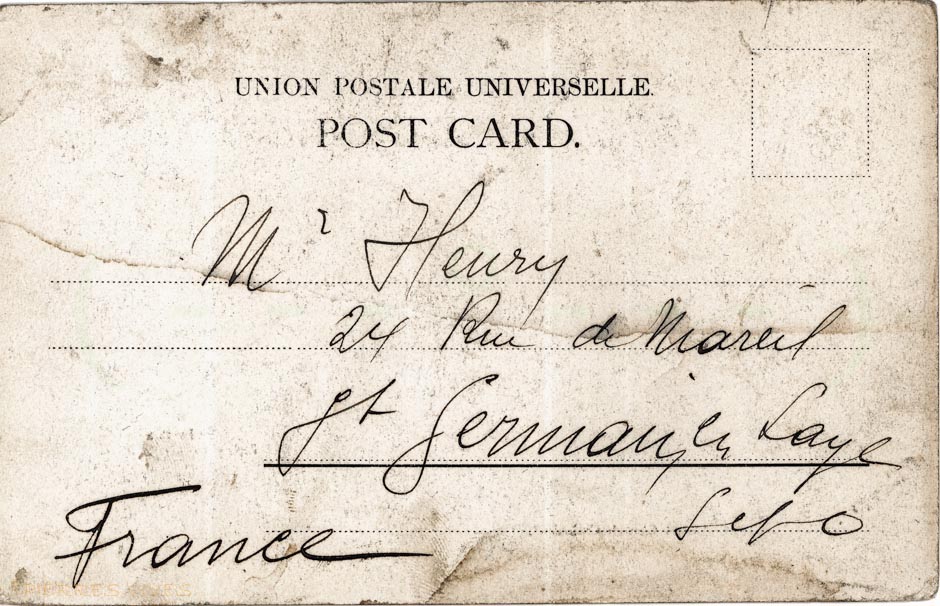 UNION POSTALE UNIVERSELLE.
POST CARD.
Mr Henry
24 Rue de Mareil
St Germain en Laye
S et O
France